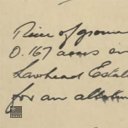 Piece of ground
0.167 acres on
Lawhead Estate
for an allotm